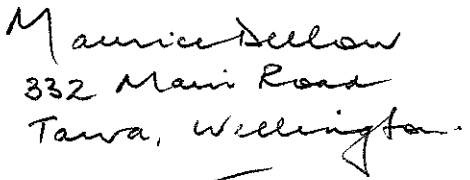 Maurice Dellow
332 Main Road
Tawa, Wellington.